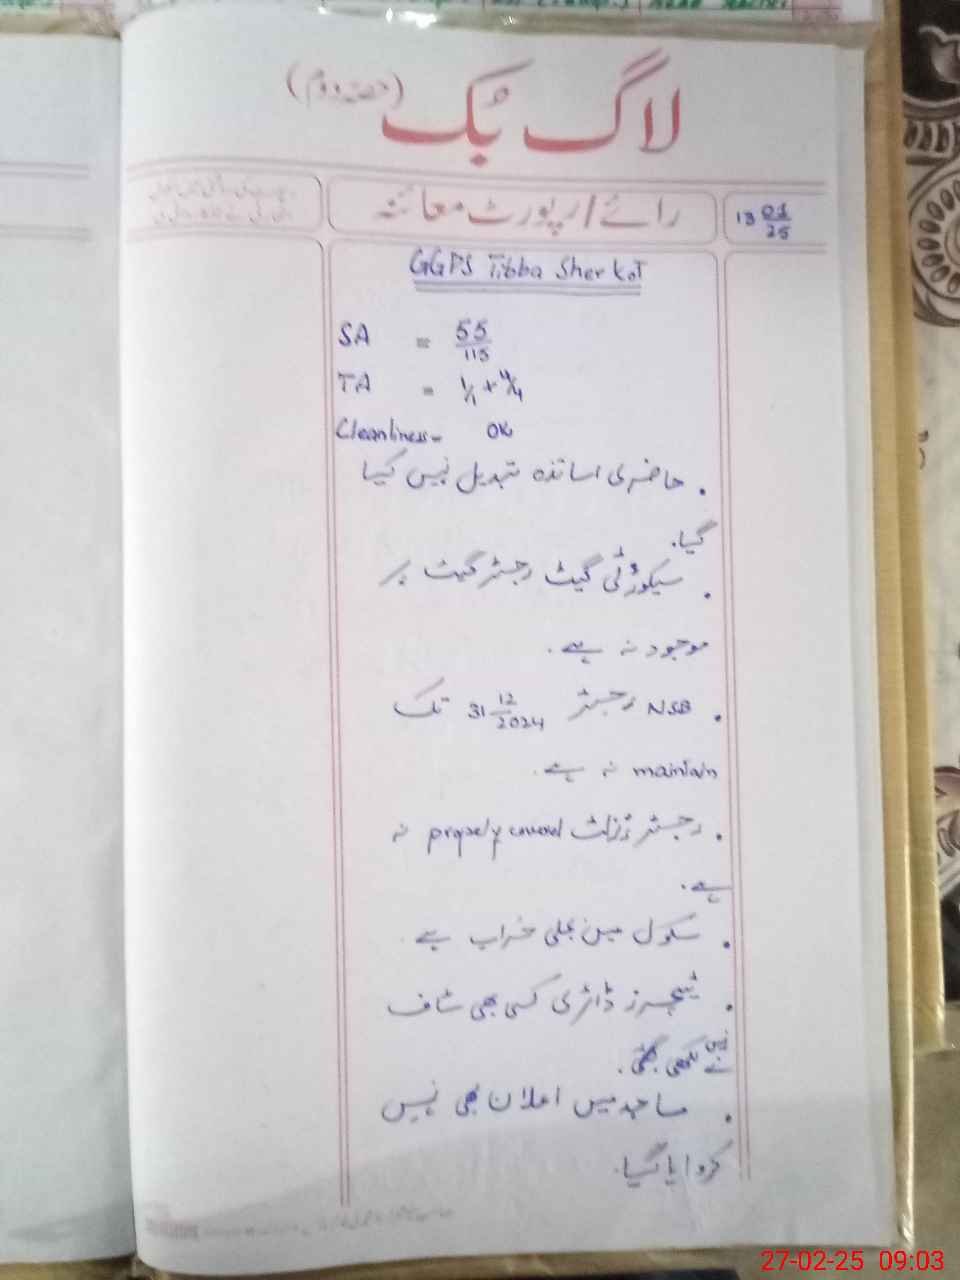 لاگ بُک (حصہ دوم)
رائے/رپورٹ معائنہ
13 01/25
GGPS Tibba Sher Kot
SA = 55/115
TA = 1/1 + 4/4
Cleanliness - OK
. حاضری اساتذہ تبدیل نہیں کیا
گیا.
. سیکورٹی گیٹ رجسٹر گیٹ پر
موجود نہ ہے.
. NSB رجسٹر 31 12/2024 تک
maintain نہ ہے.
. رجسٹر نہ
ہے.
. سکول میں بجلی خراب ہے.
. ٹیچرز ڈائری کسی بھی سٹاف
نے نہیں لکھی گئی.
. مساجد میں اعلان بھی نہیں
کروایا گیا.
27-02-25 09:03